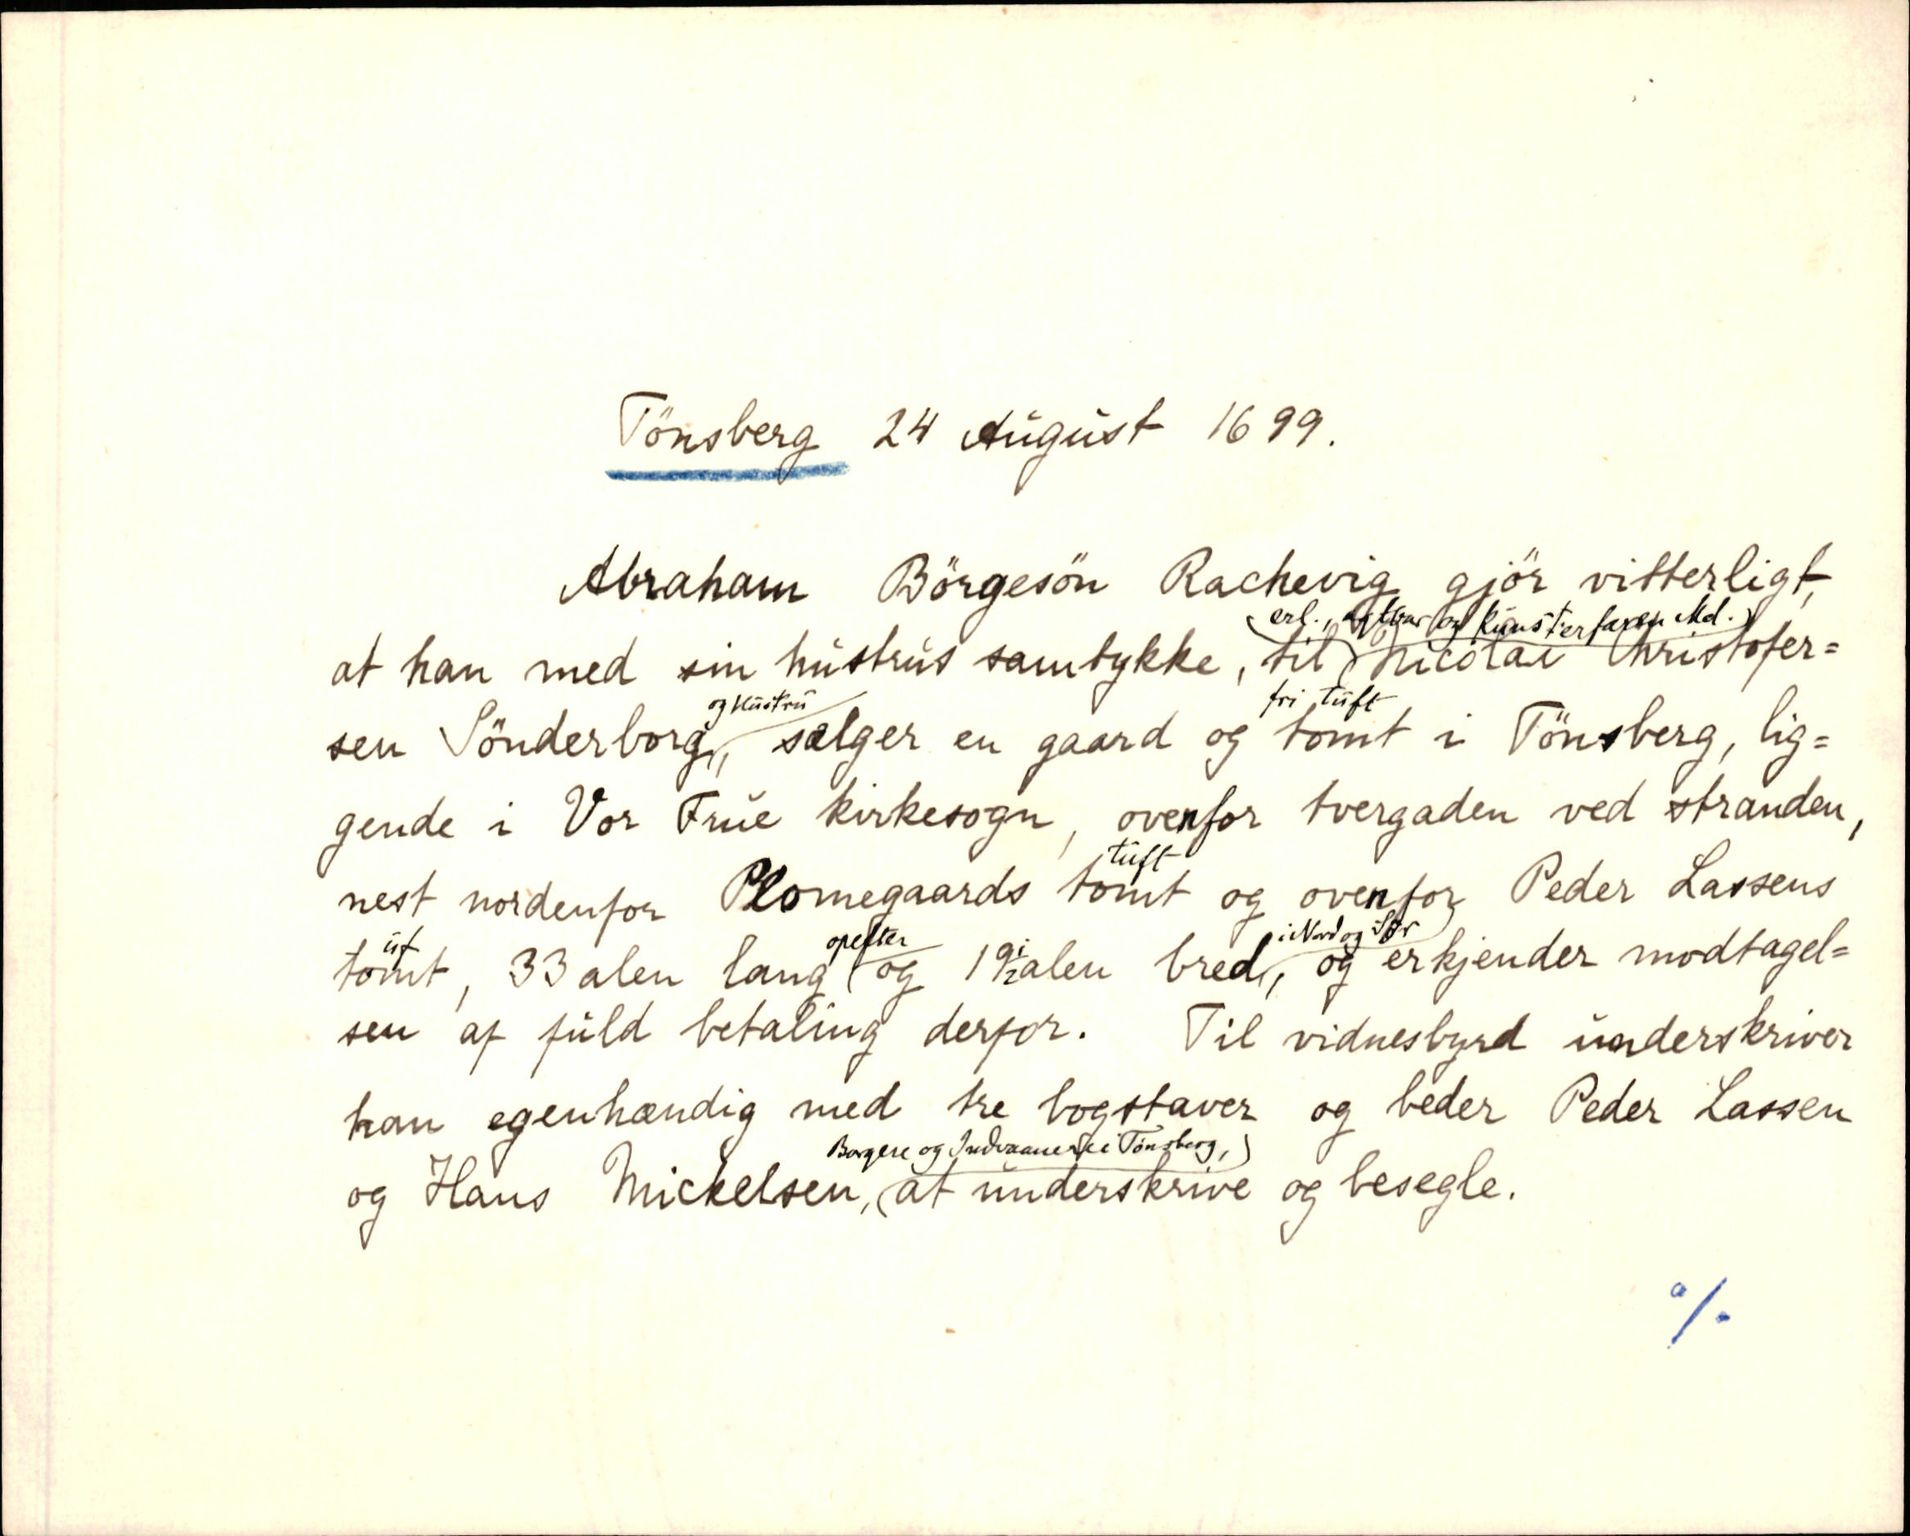 Tönsberg 24 August 1699.
Abraham Börgesön Rachevig gjör vitterligt,
erl., agtbar og kunsterfaren Md.
at han med sin hustrus samtykke, til Nicolai Christofer=
og Hustru fri tuft
sen Sönderborg, sælger en gaard og tomt i Tönsberg, lig=
gende i Vor Frue kirkesogn, ovenfor tvergaden ved stranden,
tuft
nest nordenfor Plomegaards tomt og ovenfor Peder Lassens
uf opefter i Nord og Sør
tomt, 33 alen lang og 19½ alen bred, og erkjender modtagel=
sen af fuld betaling derfor. Til vidnesbyrd underskriver
han egenhændig med tre bogstaver og beder Peder Lassen
Borgere og Indvaanere i Tønsberg,
og Hans Mickelsen, at underskrive og besegle.
%